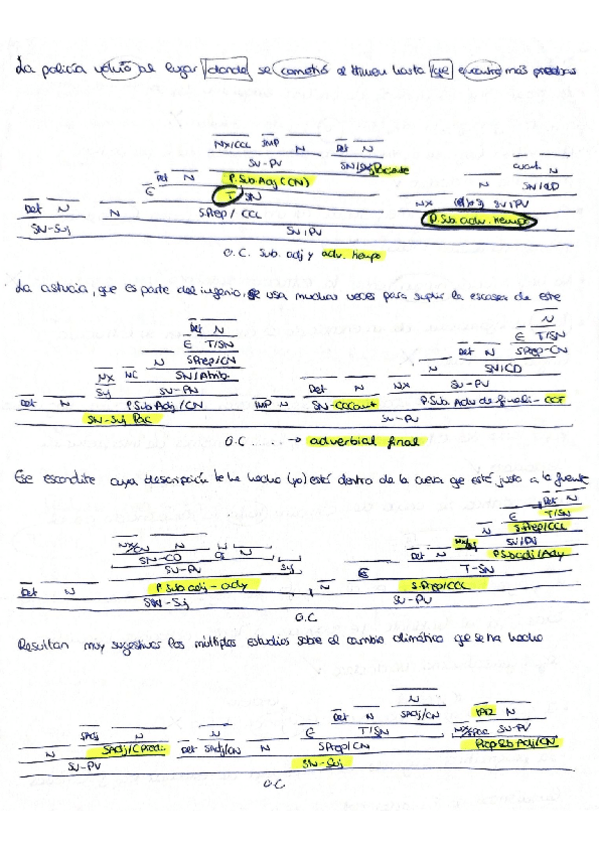 La policía volvió al lugar donde se cometió el crimen hasta que encontró más pruebas
NX/CCL IMP N Det N
SV-PV SN/ Paciente
Det N P.Sub.Adj (CN) N cuant. N
E T SN SN/CD
Det N N S.Prep / CCL NX SV/PV
SN-Suj SV/PV P.Sub. adv. tiempo
O.C. Sub. adj y adv. tiempo
La astucia, que es parte del ingenio, se usa muchas veces para suplir la escasez de este
Det N N
E T/SN E T/SN
N SPrep/CN Det N SPrep-CN
NX NC SN/Atrib N SN/CD
Suj SV-PN Det N NX SV-PV
Det N P.Sub Adj/CN IMP N SN-CCCant P.Sub. Adv de finali-CCF
SN-Suj Pac SV-PV
O.C ..... → adverbial final
Ese escondite cuya descripción te he hecho (yo) está dentro de la cueva que está justo a la fuente
Det N
E T/SN
NX/CN N N S.Prep/CCL
SN-CD CI N NX/Suj SV/PV
SV-PV Suj Det N P.Sub adj/Ady
Det N P.Sub adj-ady E T-SN
N S.Prep/CCL
SN-Suj SV-PV
O.C
Resultan muy sugestivos los múltiples estudios sobre el cambio climático que se ha hecho
N
Det N SAdj/CN N
SAdj N N E T/SN NX/Pac SV-PV
N SAdj/CPred. Det SAdj/CN N SPrep/CN Prop Sub Adj/CN
SV-PV SN-Suj
O.C